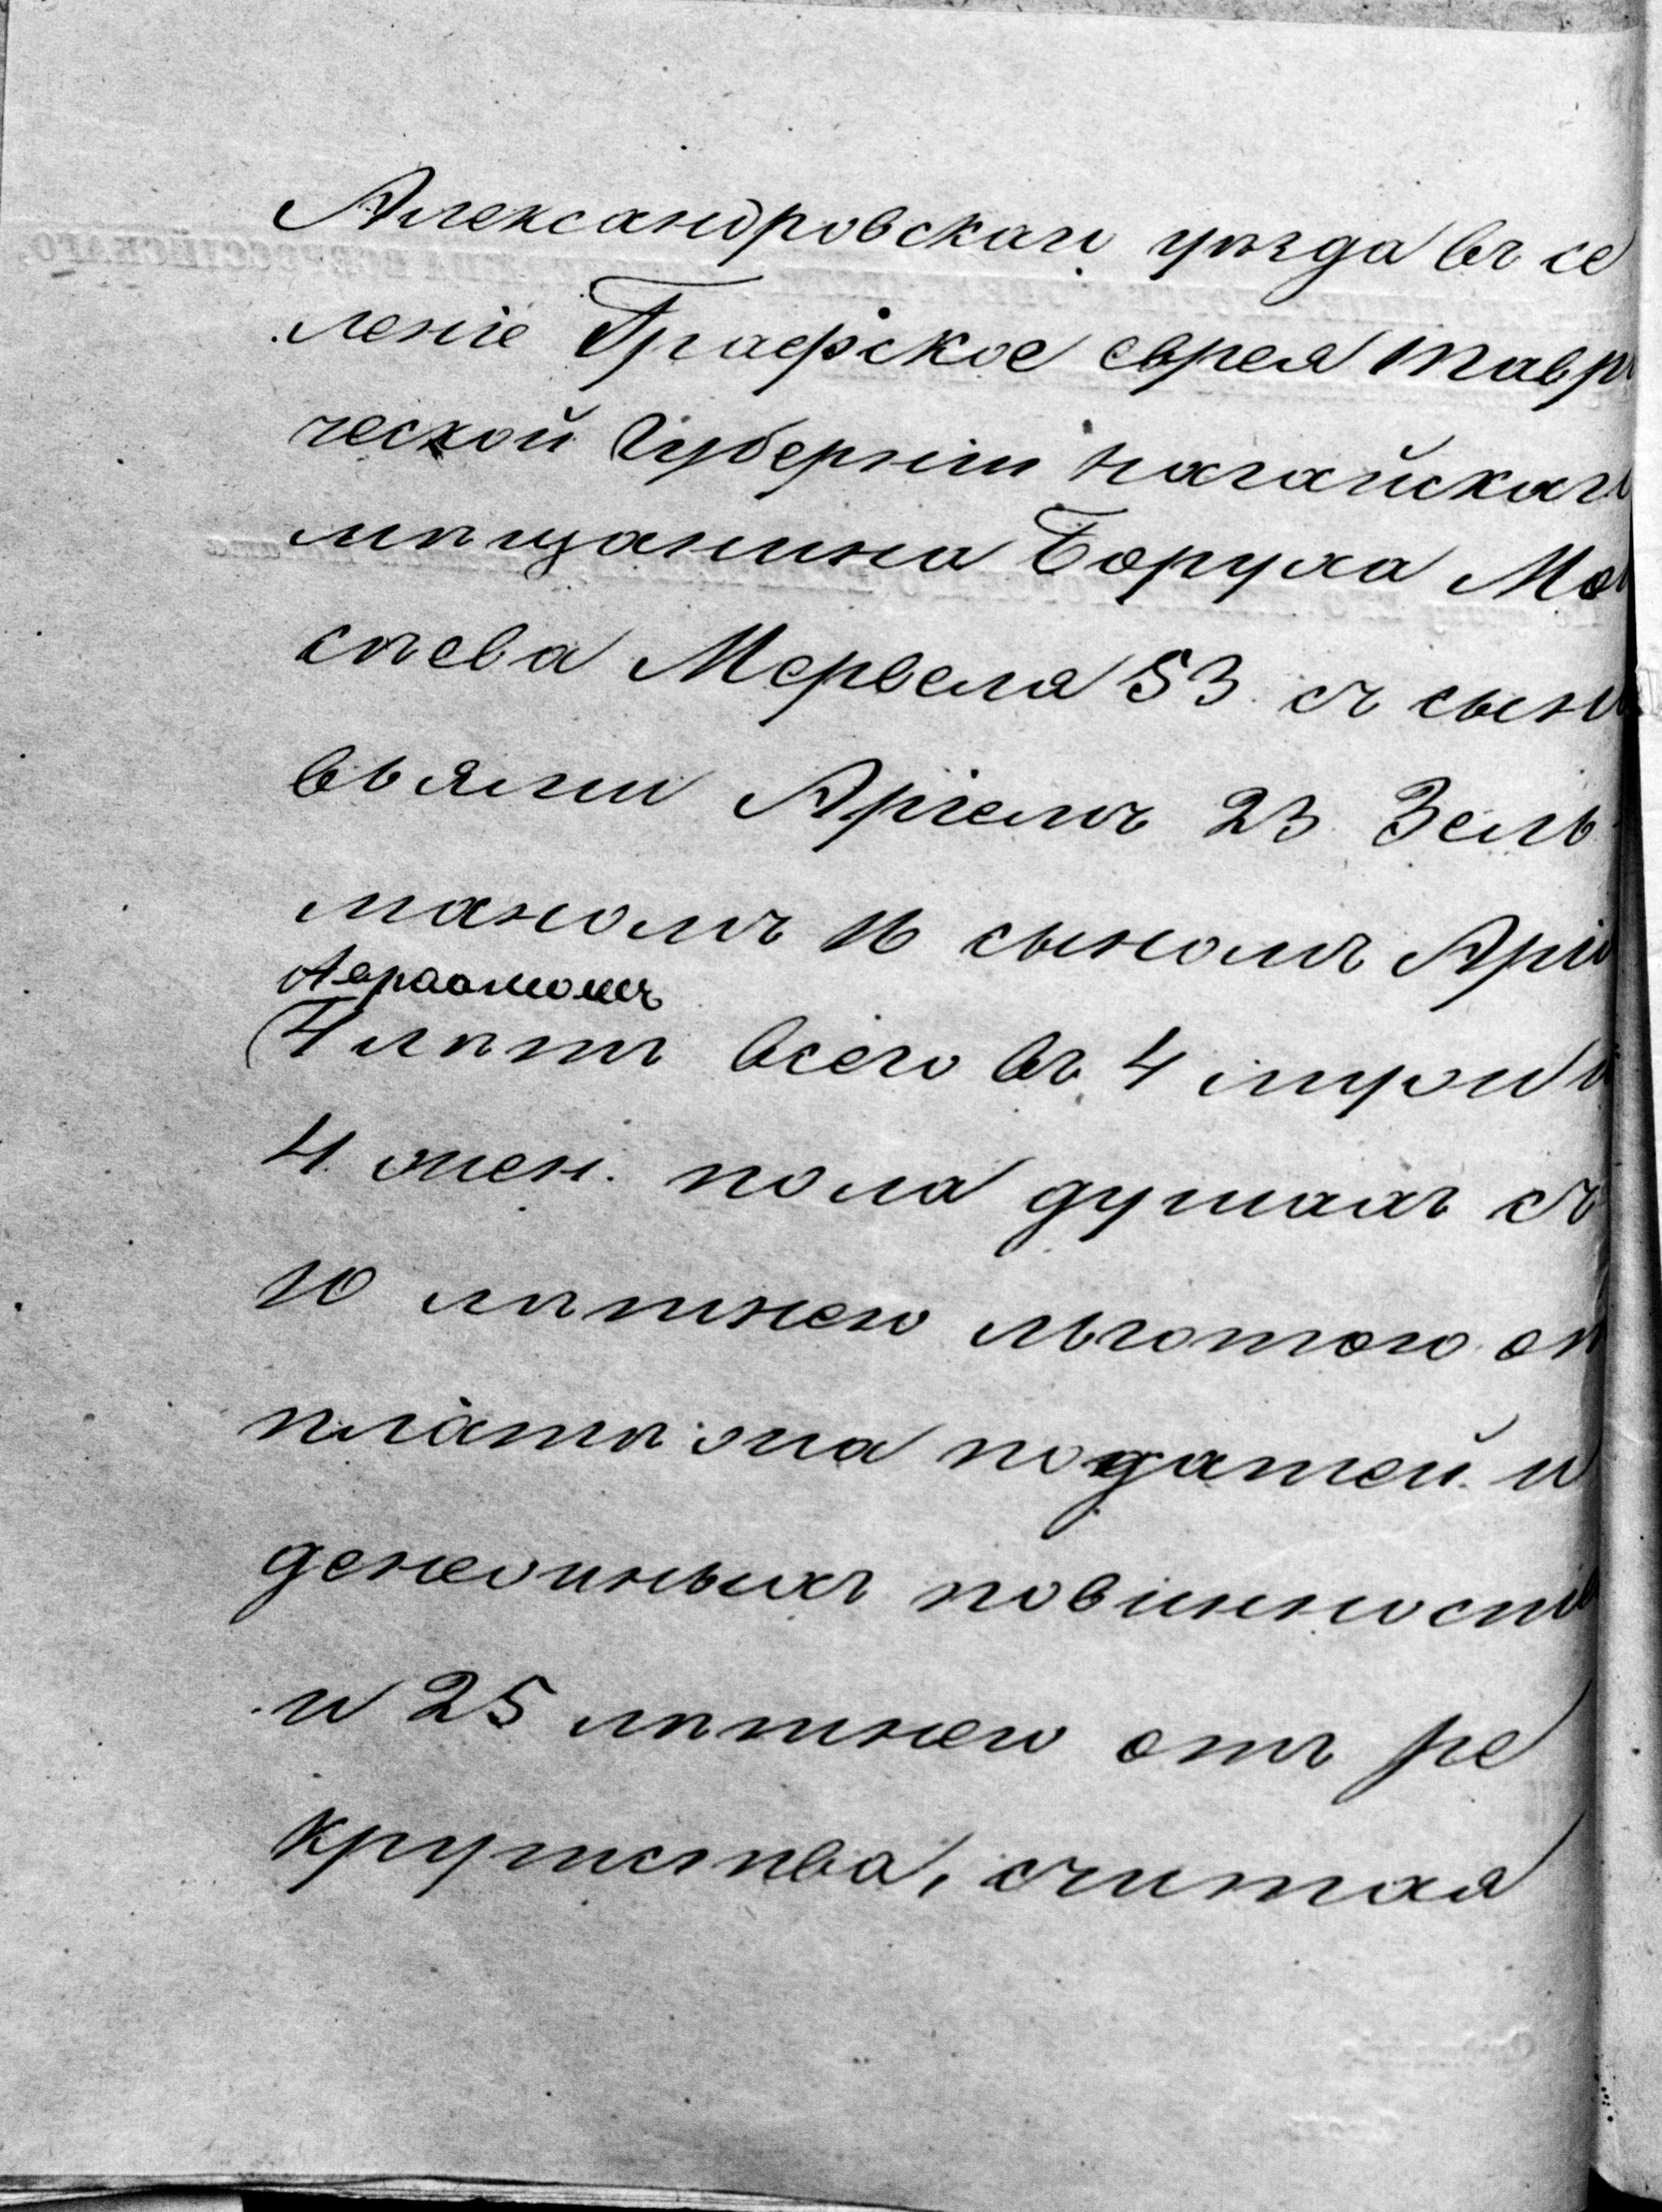 Александровскаго уѣзда въ се
леніе Графское еврея Таври
ческой Губерніи Нагайскаго
мѣщанина Боруха Мо
сѣева Мервеля 53 съ сыно
вьями Аріемъ 23 Зель
маномъ 16 сыномъ Арія
Авраамомъ
4 лѣтъ всего въ 4 муж и
4 жен. пола душахъ съ
10 лѣтнею льготою от
платежа податей и
денежныхъ повинностей
и 25 лѣтнею отъ ре
крутства, считая